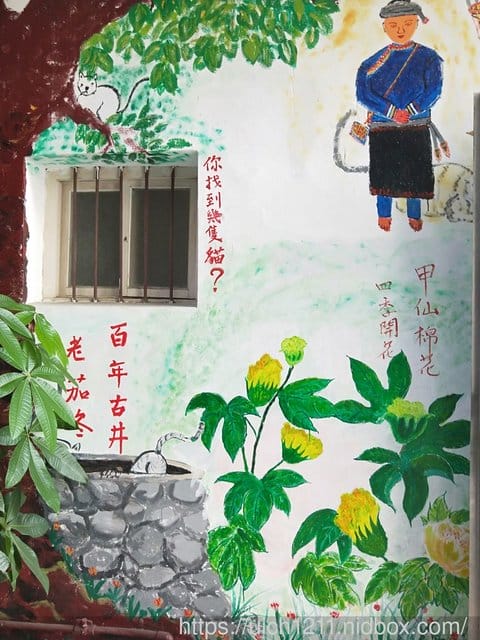 你找到幾隻貓?
甲仙棉花
四季開花
百年古井
老茄冬